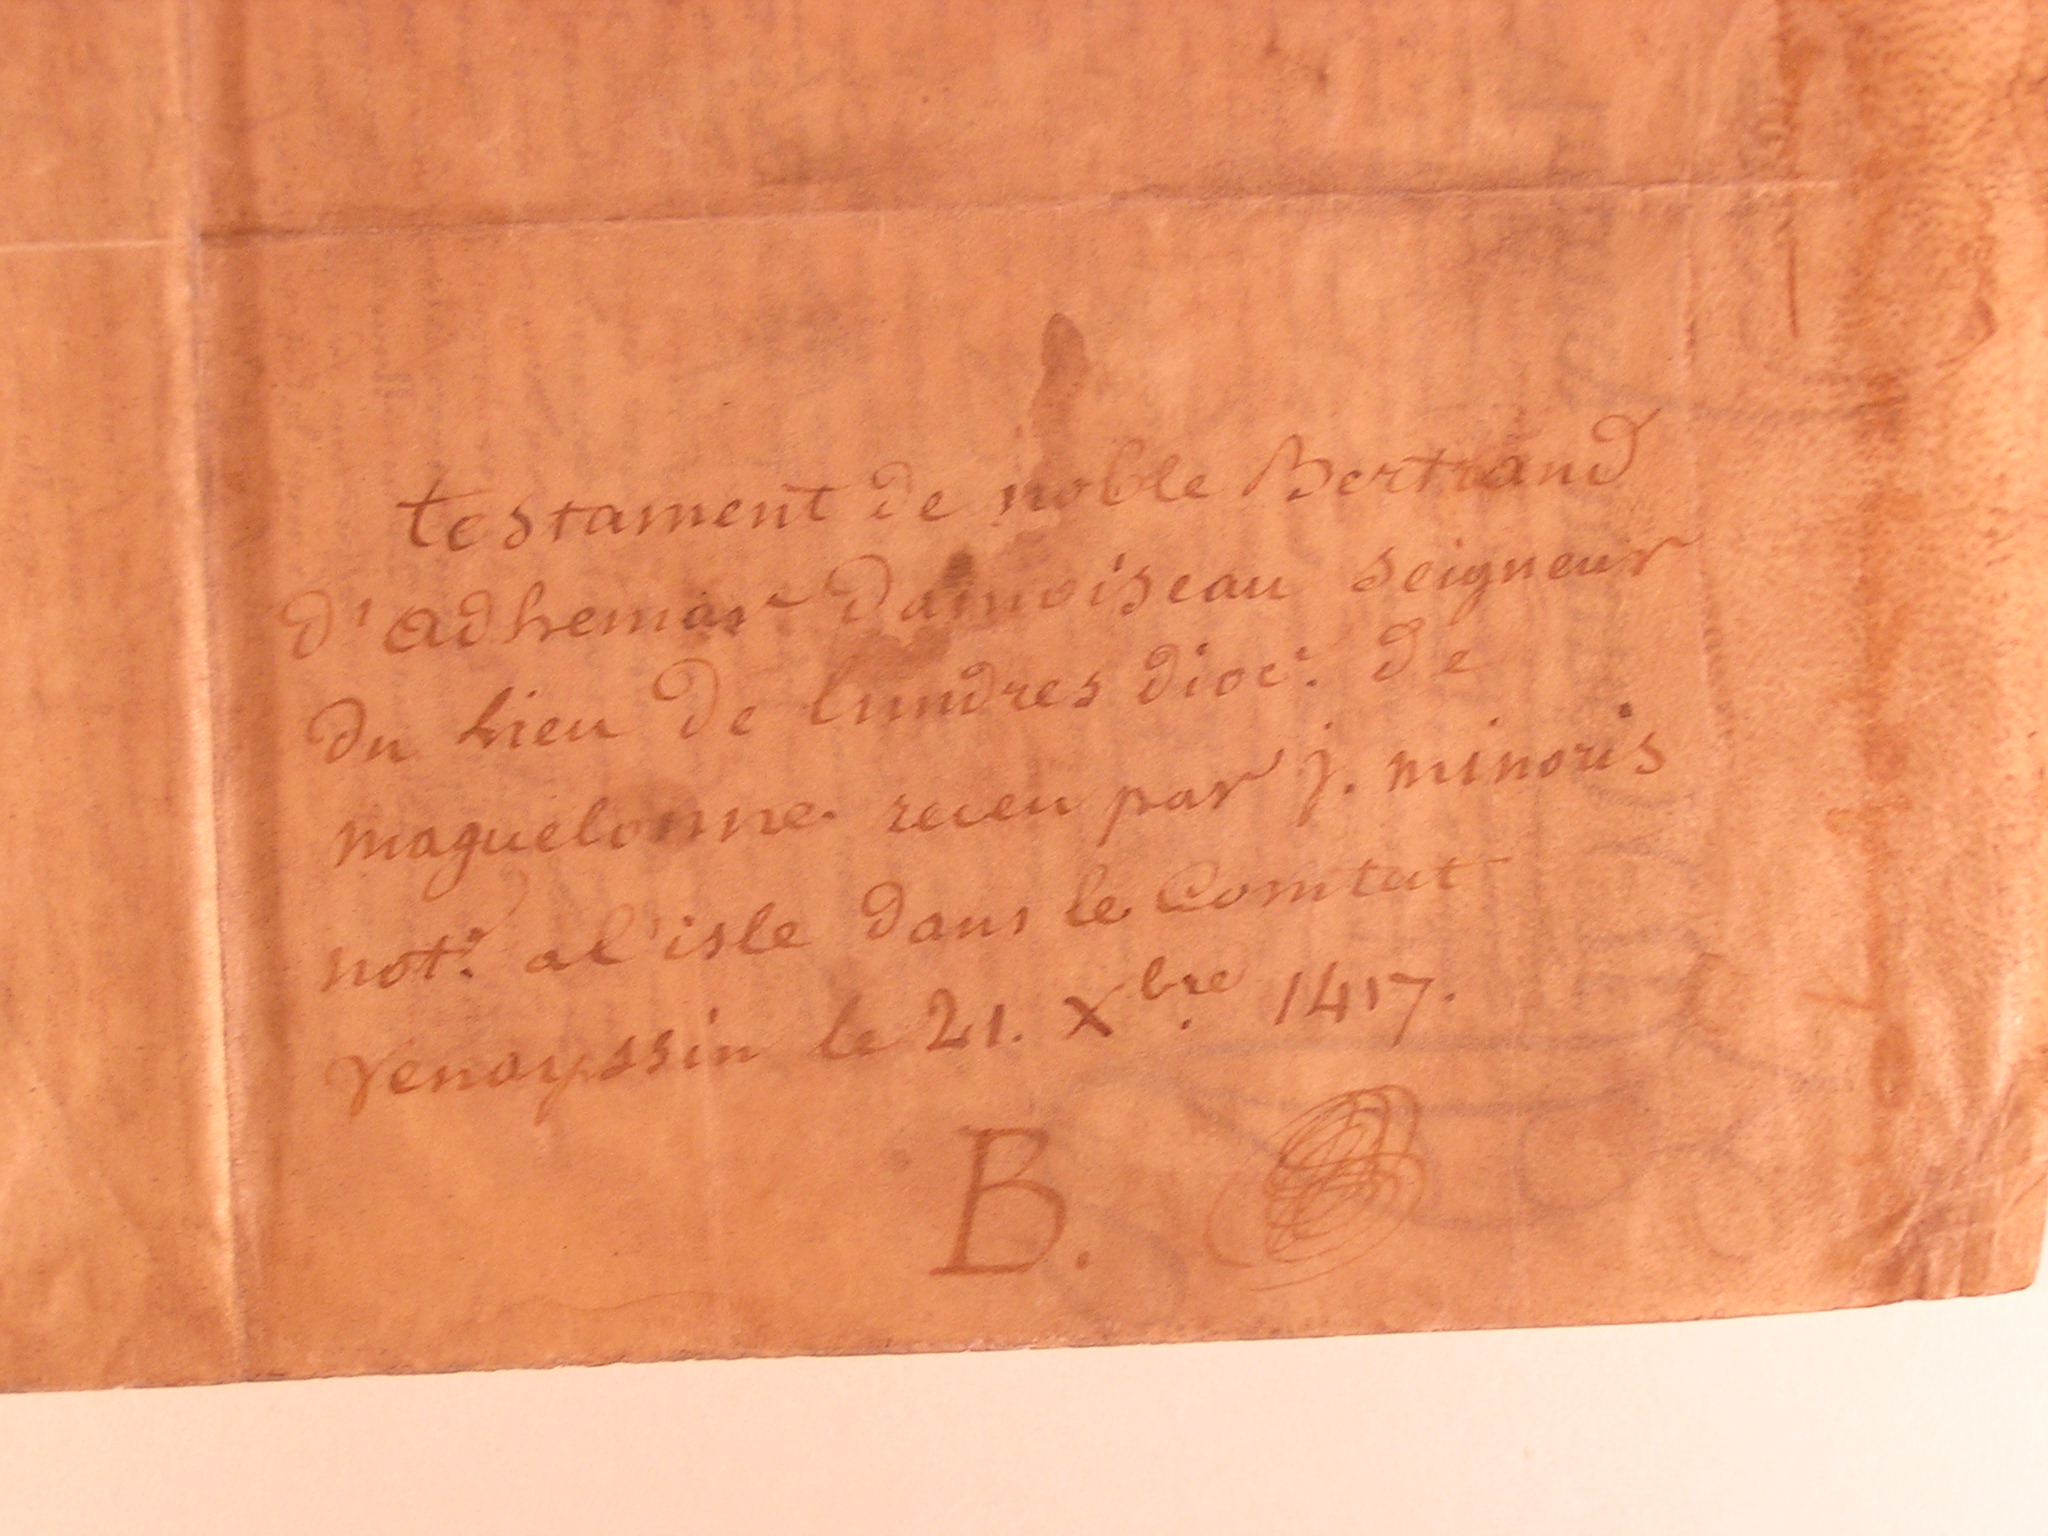 testament de noble Bertrand
d'adhemar damoiseau seigneur
du lieu de lundres dioc. de
maguelonne. receu par j. minoris
not.e a l'isle dans le Comtat
venayssin le 21. Xbre 1417.
B.